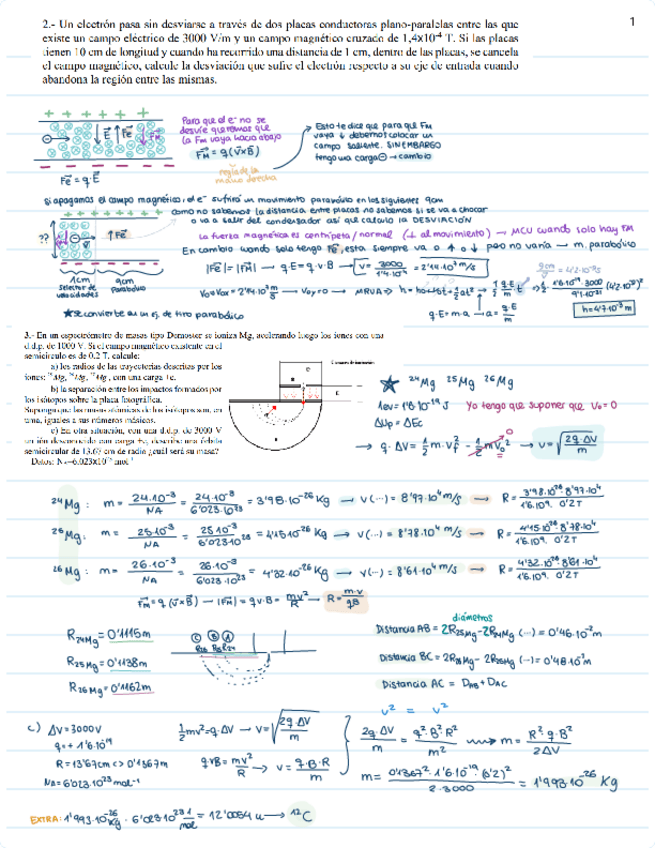 1
2.- Un electrón pasa sin desviarse a través de dos placas conductoras plano-paralelas entre las que
existe un campo eléctrico de 3000 V/m y un campo magnético cruzado de 1,4x10⁻⁴ T. Si las placas
tienen 10 cm de longitud y cuando ha recorrido una distancia de 1 cm, dentro de las placas, se cancela
el campo magnético, calcule la desviación que sufre el electrón respecto a su eje de entrada cuando
abandona la región entre las mismas.
Para que el e⁻ no se
desvíe queremos que
la Fm vaya hacia abajo
F⃗m = q(v⃗xB⃗)
regla de la
mano derecha
Esto te dice que para que Fm
vaya ↓ debemos colocar un
campo saliente. SIN EMBARGO
tengo una carga ⊖ → cambio
E⃗ F⃗e Fm
F⃗e = q·E⃗
Si apagamos el campo magnético, el e⁻ sufrirá un movimiento parabólico en los siguientes 9cm
como no sabemos la distancia entre placas no sabemos si se va a chocar
o va a salir del condensador así que calculo la DESVIACIÓN
La fuerza magnética es centrípeta/normal (⊥ al movimiento) → MCU cuando solo hay Fm
En cambio cuando solo tengo Fe, esta siempre va o ↑ o ↓ pero no varía → m. parabólico
?? ↑F⃗e
|F⃗e|=|F⃗m| → q·E=q·v·B → v= 3000/1'4·10⁻⁴ = 2'14·10⁷m/s
1cm 9cm
selector de parabólico
velocidades
V₀=V₀ₓ= 2'14·10⁷ m/s → V₀y=0 → MRUA → h= h₀+v₀t+½at²
q·E=m·a → a= q·E/m
h=4'7·10⁻³m
★ se convierte en un ej. de tiro parabólico
3.- En un espectrómetro de masas tipo Dempster se ioniza Mg, acelerando luego los iones con una
d.d.p. de 1000 V. Si el campo magnético existente en el
semicírculo es de 0,2 T, calcule:
a) los radios de las trayectorias descritas por los
iones: ²⁴Mg, ²⁵Mg, ²⁶Mg, con una carga +e.
b) la separación entre los impactos formados por
los isótopos sobre la placa fotográfica.
Suponga que las masas atómicas de los isótopos son, en
uma, iguales a sus números másicos.
c) En otra situación, con una d.d.p. de 3000 V
un ión desconocido con carga +e, describe una órbita
semicircular de 13,67 cm de radio ¿cuál será su masa?
Datos: Nₐ=6.023x10²³ mol⁻¹
★ ²⁴Mg ²⁵Mg ²⁶Mg
1ev= 1'6·10⁻¹⁹ J Ya tengo que suponer que V₀=0
ΔUp = ΔEc
→ q·ΔV= ½m·vf² - ½mv₀² → v=√(2q·ΔV/m)
²⁴Mg: m= 24·10⁻³/NA = 24·10⁻³/6'023·10²³ = 3'98·10⁻²⁶ Kg → v(...)= 8'97·10⁴ m/s → R= 3'98·10⁻²⁶·8'97·10⁴/1'6·10⁻¹⁹·0'2T
²⁵Mg: m= 25·10⁻³/NA = 25·10⁻³/6'023·10²³ = 4'15·10⁻²⁶ Kg → v(...)= 8'78·10⁴ m/s → R= 4'15·10⁻²⁶·8'78·10⁴/1'6·10⁻¹⁹·0'2T
²⁶Mg: m= 26·10⁻³/NA = 26·10⁻³/6'023·10²³ = 4'32·10⁻²⁶ Kg → v(...)= 8'61·10⁴ m/s → R= 4'32·10⁻²⁶·8'61·10⁴/1'6·10⁻¹⁹·0'2T
F⃗m= q(v⃗xB⃗) → |Fm|= q·v·B= mv²/R → R= m·v/qB
R24Mg= 0'1115m
R25Mg= 0'1138m
R26Mg= 0'1162m
C B A
R26 R25 R24
diámetros
Distancia AB= 2R25Mg-2R24Mg (...)= 0'46·10⁻²m
Distancia BC= 2R26Mg- 2R25Mg (...)= 0'48·10⁻²m
Distancia AC =
v² = v²
c) ΔV=3000V
q=+1'6·10⁻¹⁹
R=13'67cm <> 0'1367m
NA= 6'023·10²³mol⁻¹
½mv²=q·ΔV → v=√(2q·ΔV/m)
qvB= mv²/R → v= q·B·R/m
2q·ΔV/m = q²·B²·R²/m² → m= R²·q·B²/2ΔV
m= 0'1367²·1'6·10⁻¹⁹·(0'2)²/2·3000 = 1'993·10⁻²⁶ Kg
EXTRA: 1'993·10⁻²⁶Kg · 6'023·10²³ 1/mol = 12'0054 u → ¹²C